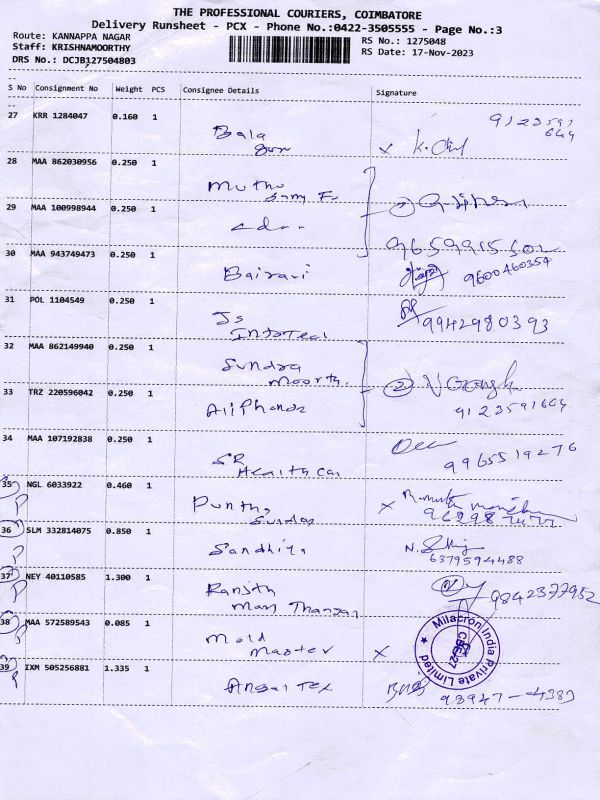 THE PROFESSIONAL COURIERS, COIMBATORE
Delivery Runsheet - PCX - Phone No.:0422-3505555 - Page No.:3
Route: KANNAPPA NAGAR RS No.: 1275048
Staff: KRISHNAMOORTHY RS Date: 17-Nov-2023
DRS No.: DCJB127504803
S No Consignment No Weight PCS Consignee Details Signature
27 KRR 1284047 0.160 1 Bala
28 MAA 862030956 0.250 1 Muthu
29 MAA 100998944 0.250 1
30 MAA 943749473 0.250 1 Bairavi 9600460354
31 POL 1104549 0.250 1 JS 9942980393
32 MAA 862149940 0.250 1 Sundra
Moorth.
33 TRZ 220596042 0.250 1 9123591664
34 MAA 107192838 0.250 1 SR 9965519276
Health Car
35 NGL 6033922 0.460 1
36 SLM 332814075 0.850 1 Sandhiya 6379594488
37 NEY 40110585 1.300 1 Ranjith 9842377952
38 MAA 572589543 0.085 1 Mold
Master X
Milacron India Private Limited
CBE-27
39 IXM 505256881 1.335 1 98947-4383